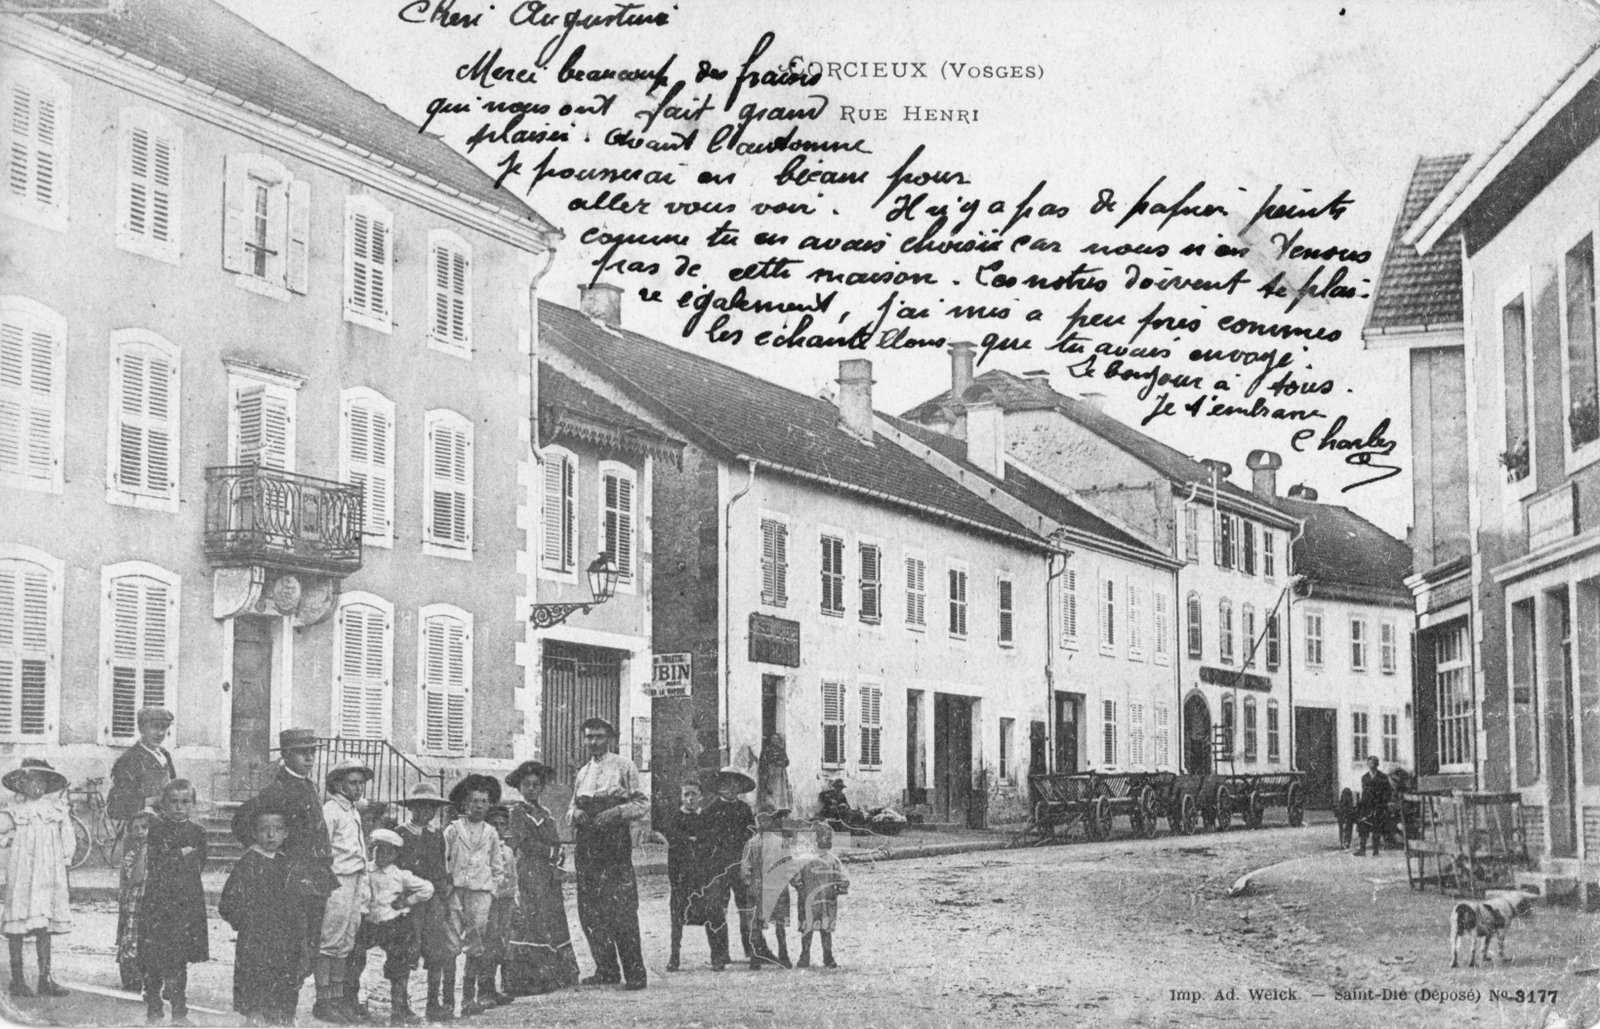 Cheri Augustine
Merci beaucoup des fraises
CORCIEUX (VOSGES)
qui nous ont fait grand
RUE HENRI
plaisir. Avant l'automne
Je pousserai en bécane pour
aller vous voir. Il n'y a pas de papier peints
comme tu en avais choisie car nous n'en venons
pas de cette maison. Les notres doivent te plai-
re également, j'ai mis a peu pres commes
les échantillons que tu avais envoyé.
Le bonjour à tous.
Je t'embrasse
Charles
UBIN
Imp. Ad. Weick. — Saint-Dié (Déposé) No 3177